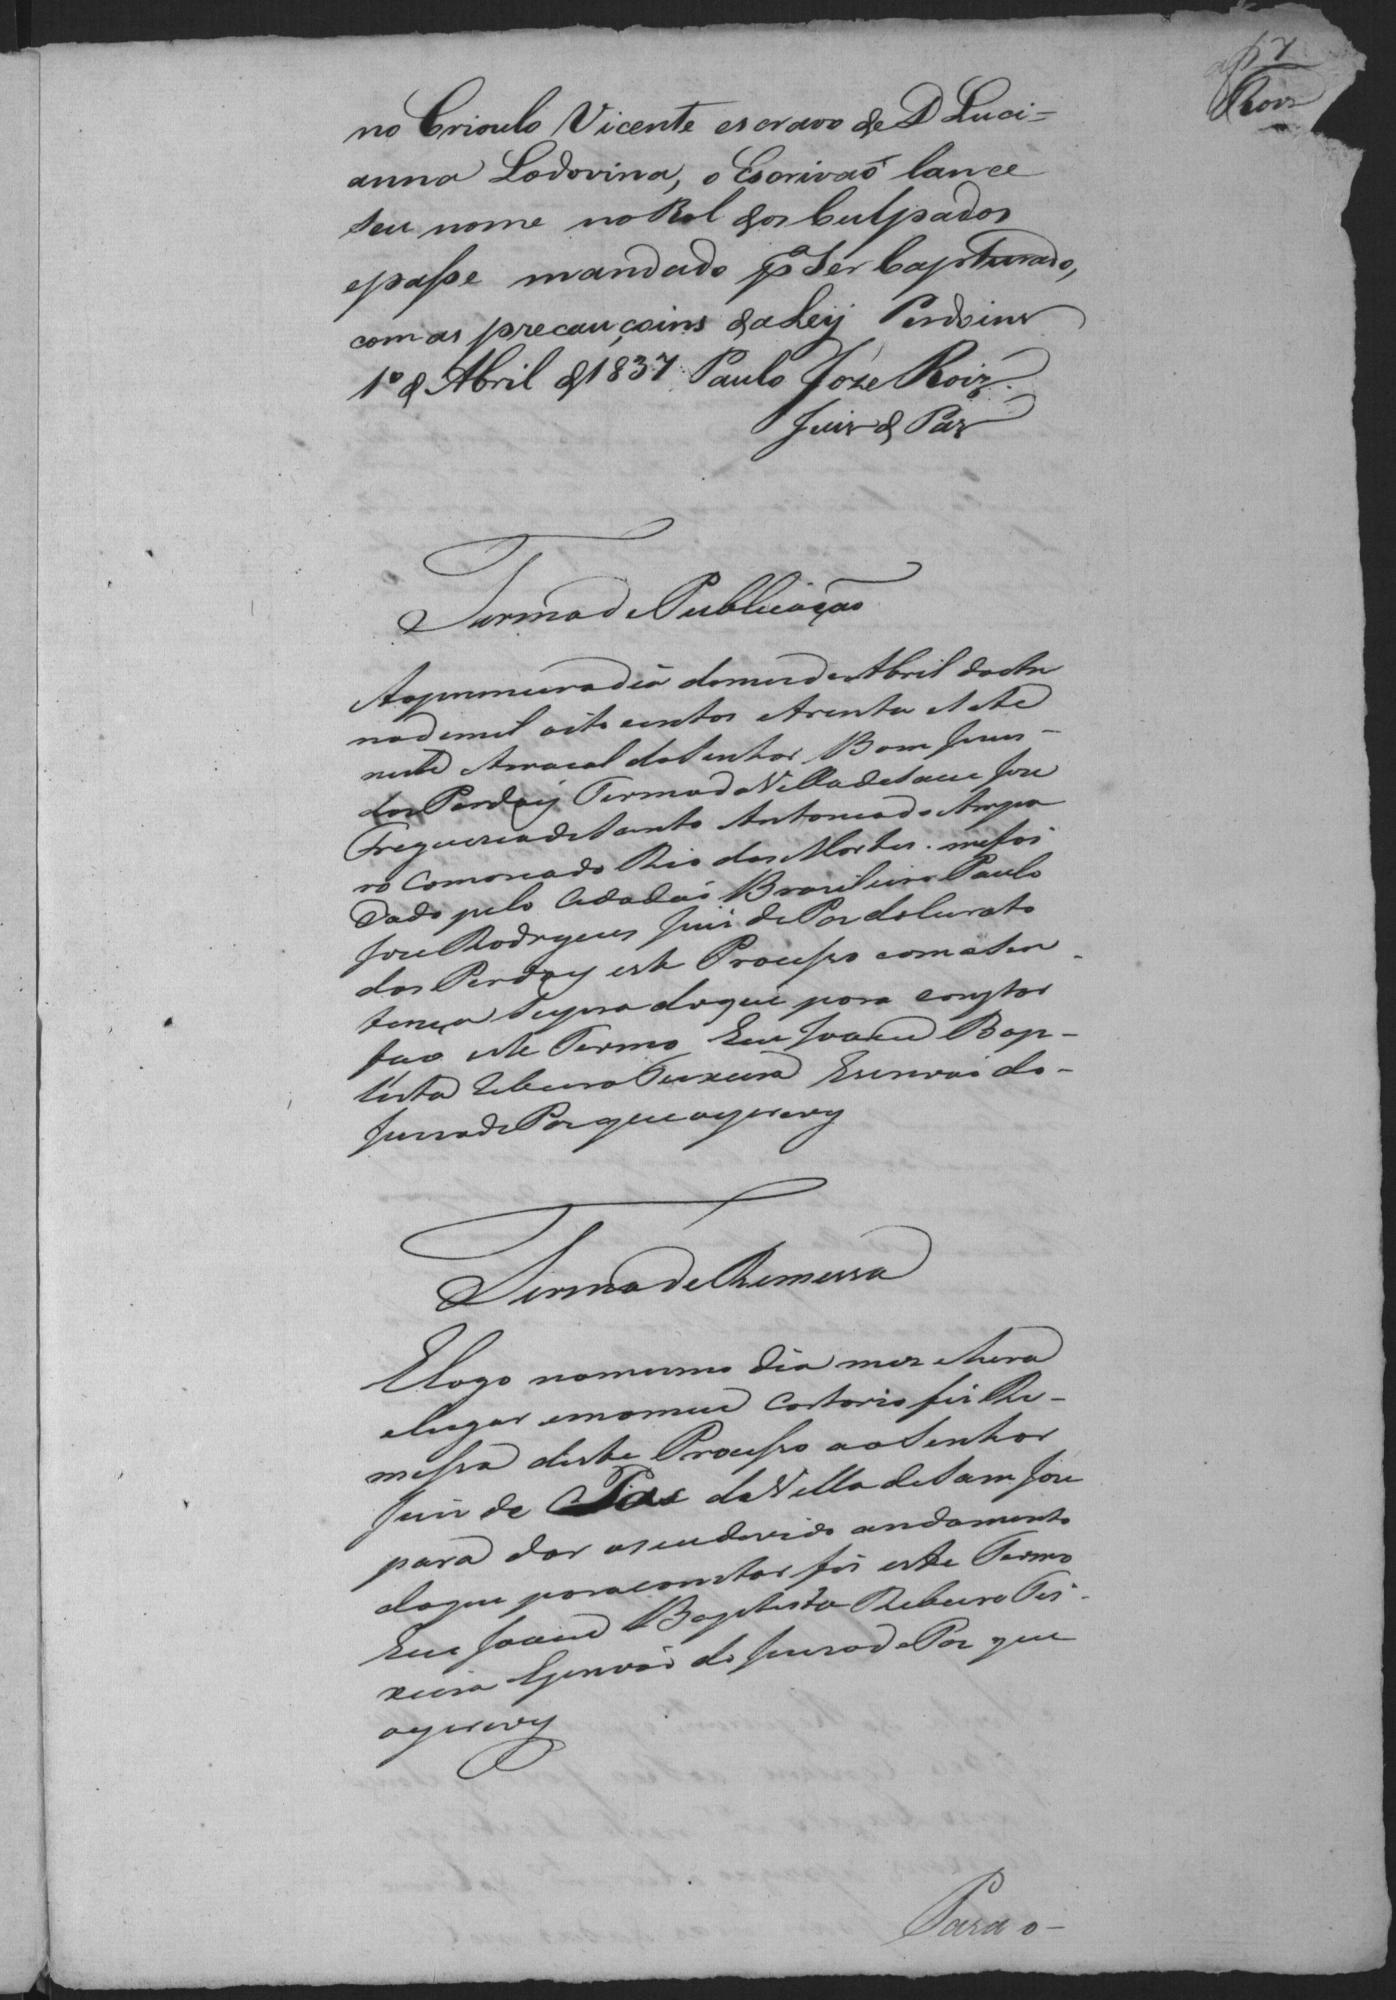 7
Roiz
no Crioulo Vicente escravo de D Luci=
anna Lodovina, o Escrivaõ lance
seu nome no Rol dos Culpados
epaſse mandado pª Ser Capturado,
com as precauçoins da Ley Perdoins
1º de Abril de 1837 Paulo Joze Roiz
Juiz de Paz
Termo de Publicação
Ao primeiro dia do mes de Abril do An
no de mil oito centos e trenta e Sete
neste Arraial do Senhor Bom Jesus -
dos Perdoẽs Termo da Villa de Sam Jose
Freguesia de Santo Antonio do Ampa
ro Comarca do Rio das Mortes. me foi
dado pelo Cidadaõ Brasileiro Paulo
Jose Rodrigues Juis de Pas do Curato
dos Perdoẽs este Proceſso com a Sen -
tença Supra do que para constar
faço este Termo Eu Joaõ Bap -
tista Ribeiro Teixeira Escrivaõ do -
Juiso de Pas que o escrevy
Termo de Remessa
E logo no mesmo dia mes e hera
e lugar em o meu Cartorio fis Re -
meſsa deste Proceſso ao Senhor
Juis de Pas da Villa de Sam Jose
para dar o seu devido andamento
do que para constar fis este Termo
Eu Joaõ Baptista Ribeiro Tei -
xeira Escrivaõ do Juiso de Pas que
o escrevy
Para o -